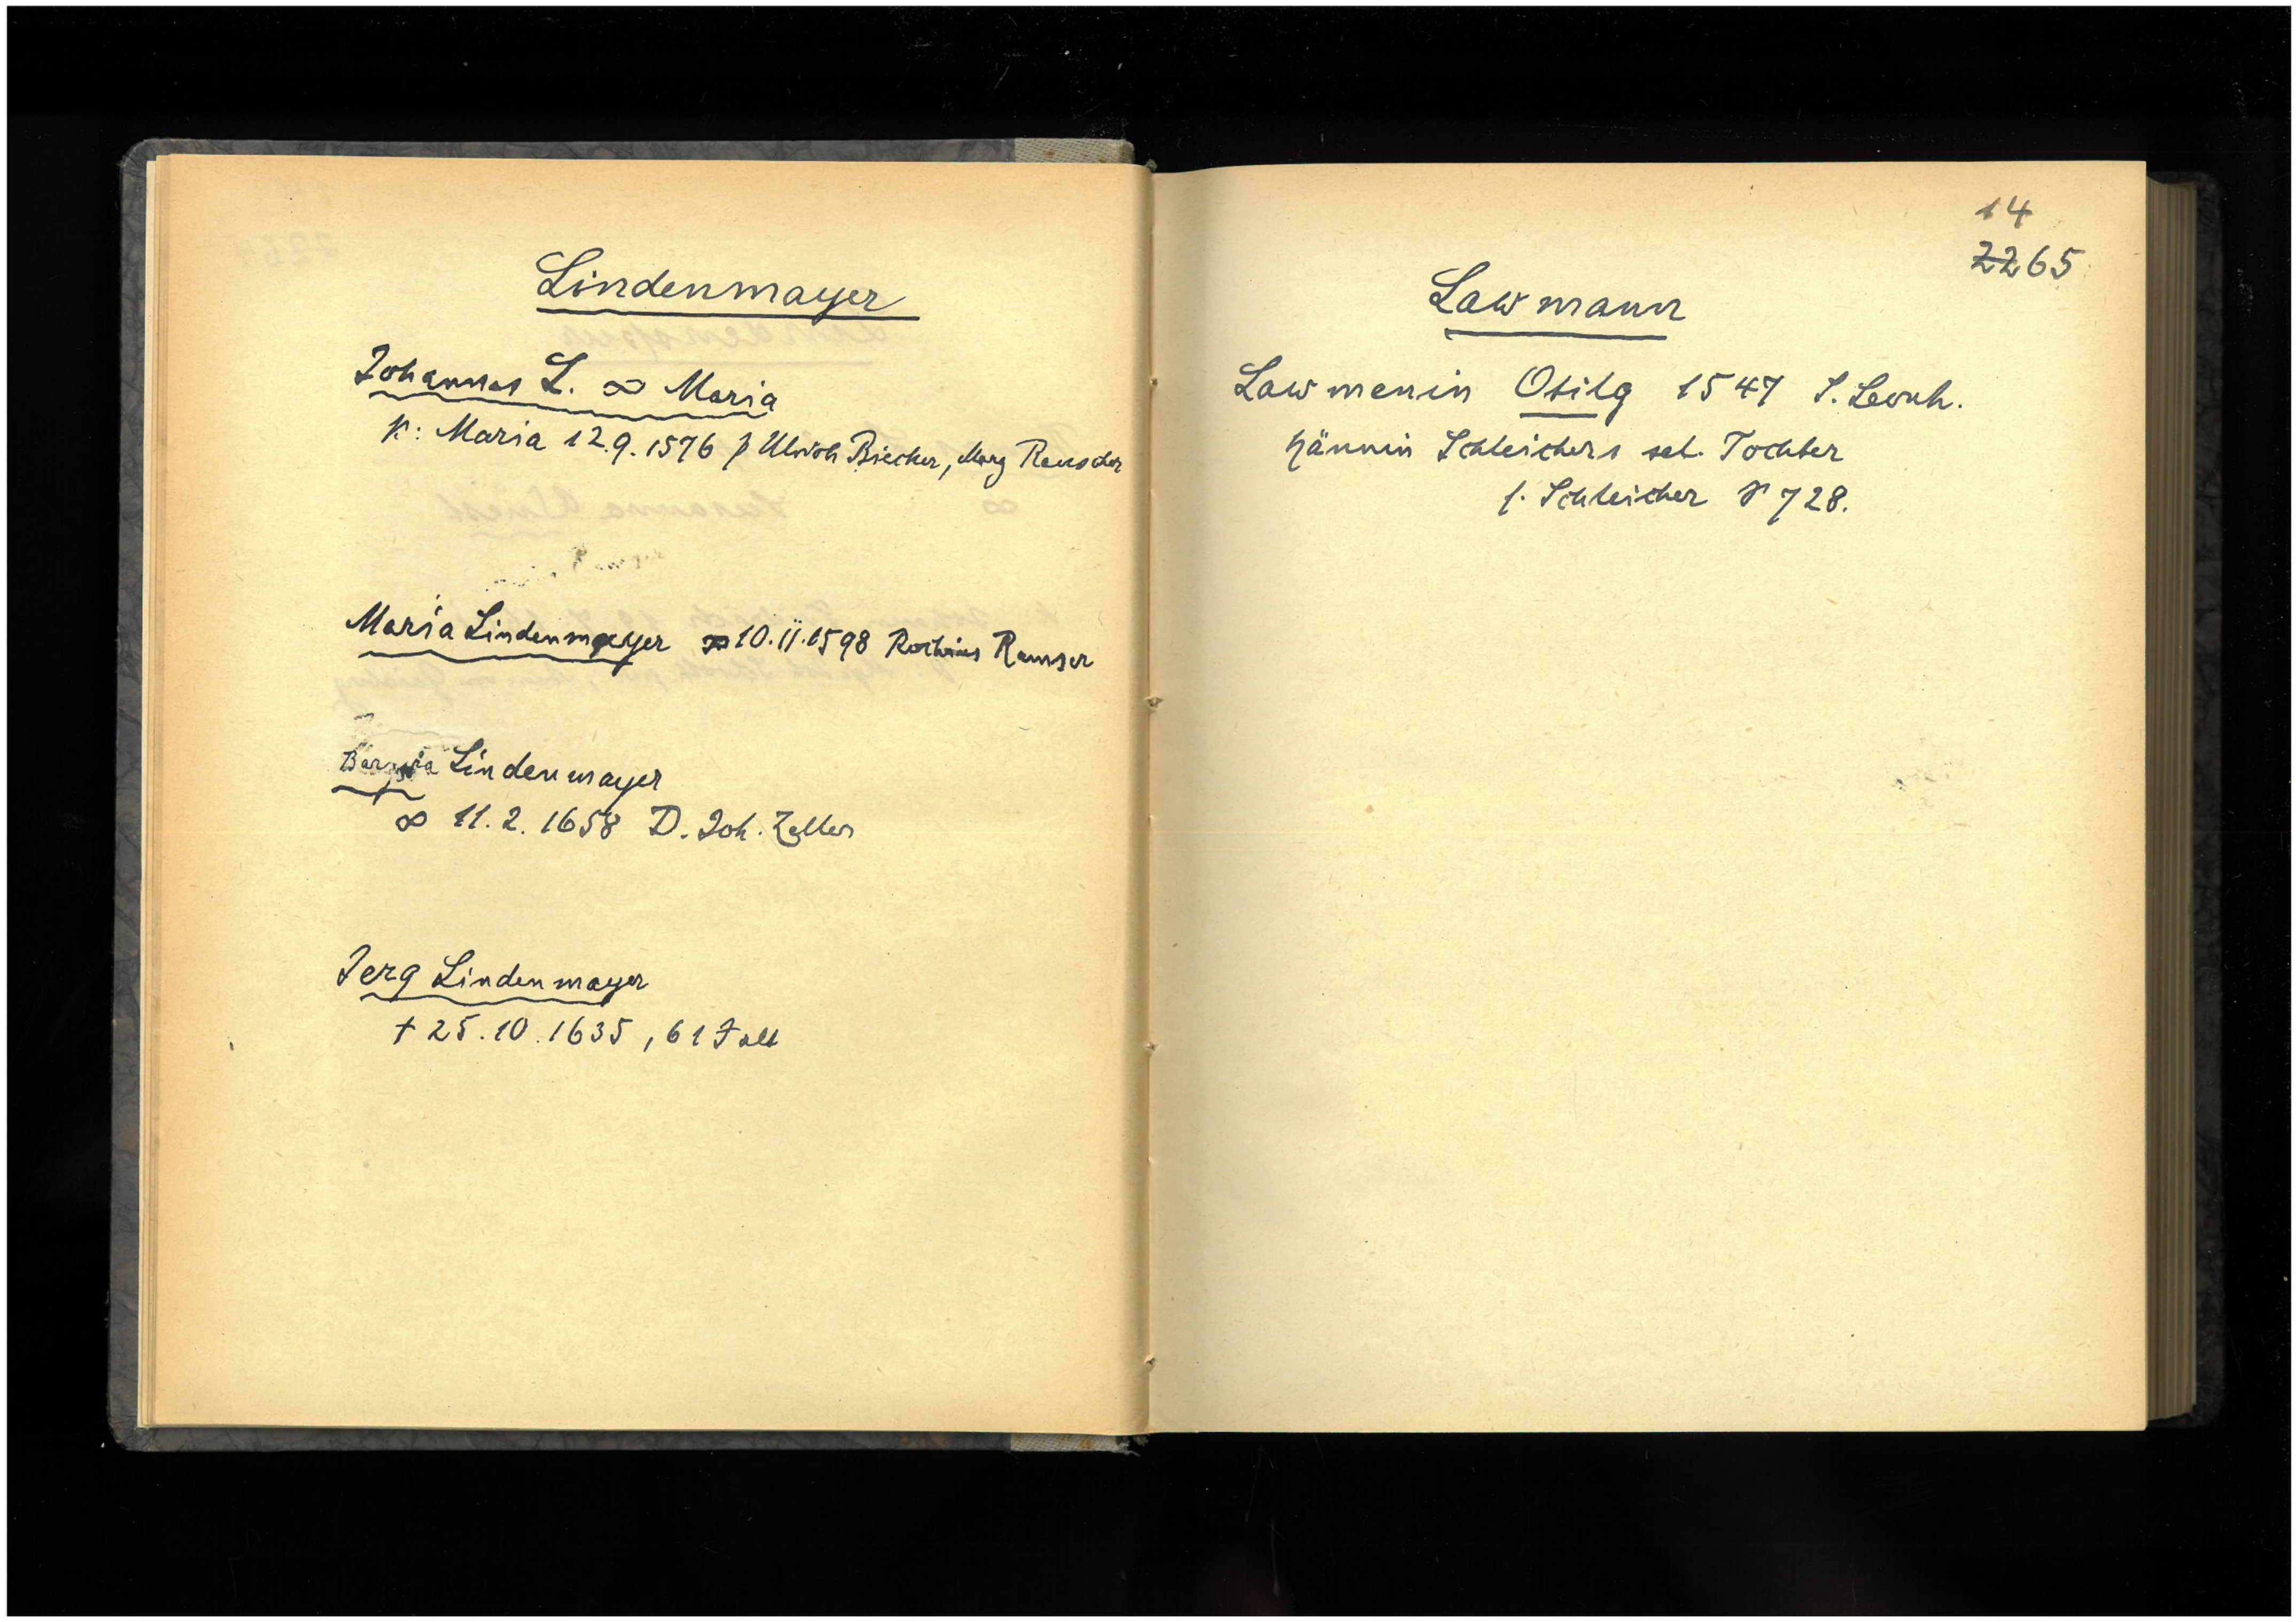 Lindenmayer
Johannes L. ∞ Maria
K: Maria 12.9.1576 p Ulrich Biecker, Marg
Maria Lindenmayer ∞ 10.11.1598 Ramser
Lindenmayer
∞ 11.2.1658 D. Joh. Zeller
Jerg Lindenmayer
† 25.10.1635, 61 J alt
14
2265
Lawmann
Lawmenin Otilg 1547 S. Leonh.
Hännin Schleichers sel. Tochter
s. Schleicher S 728.